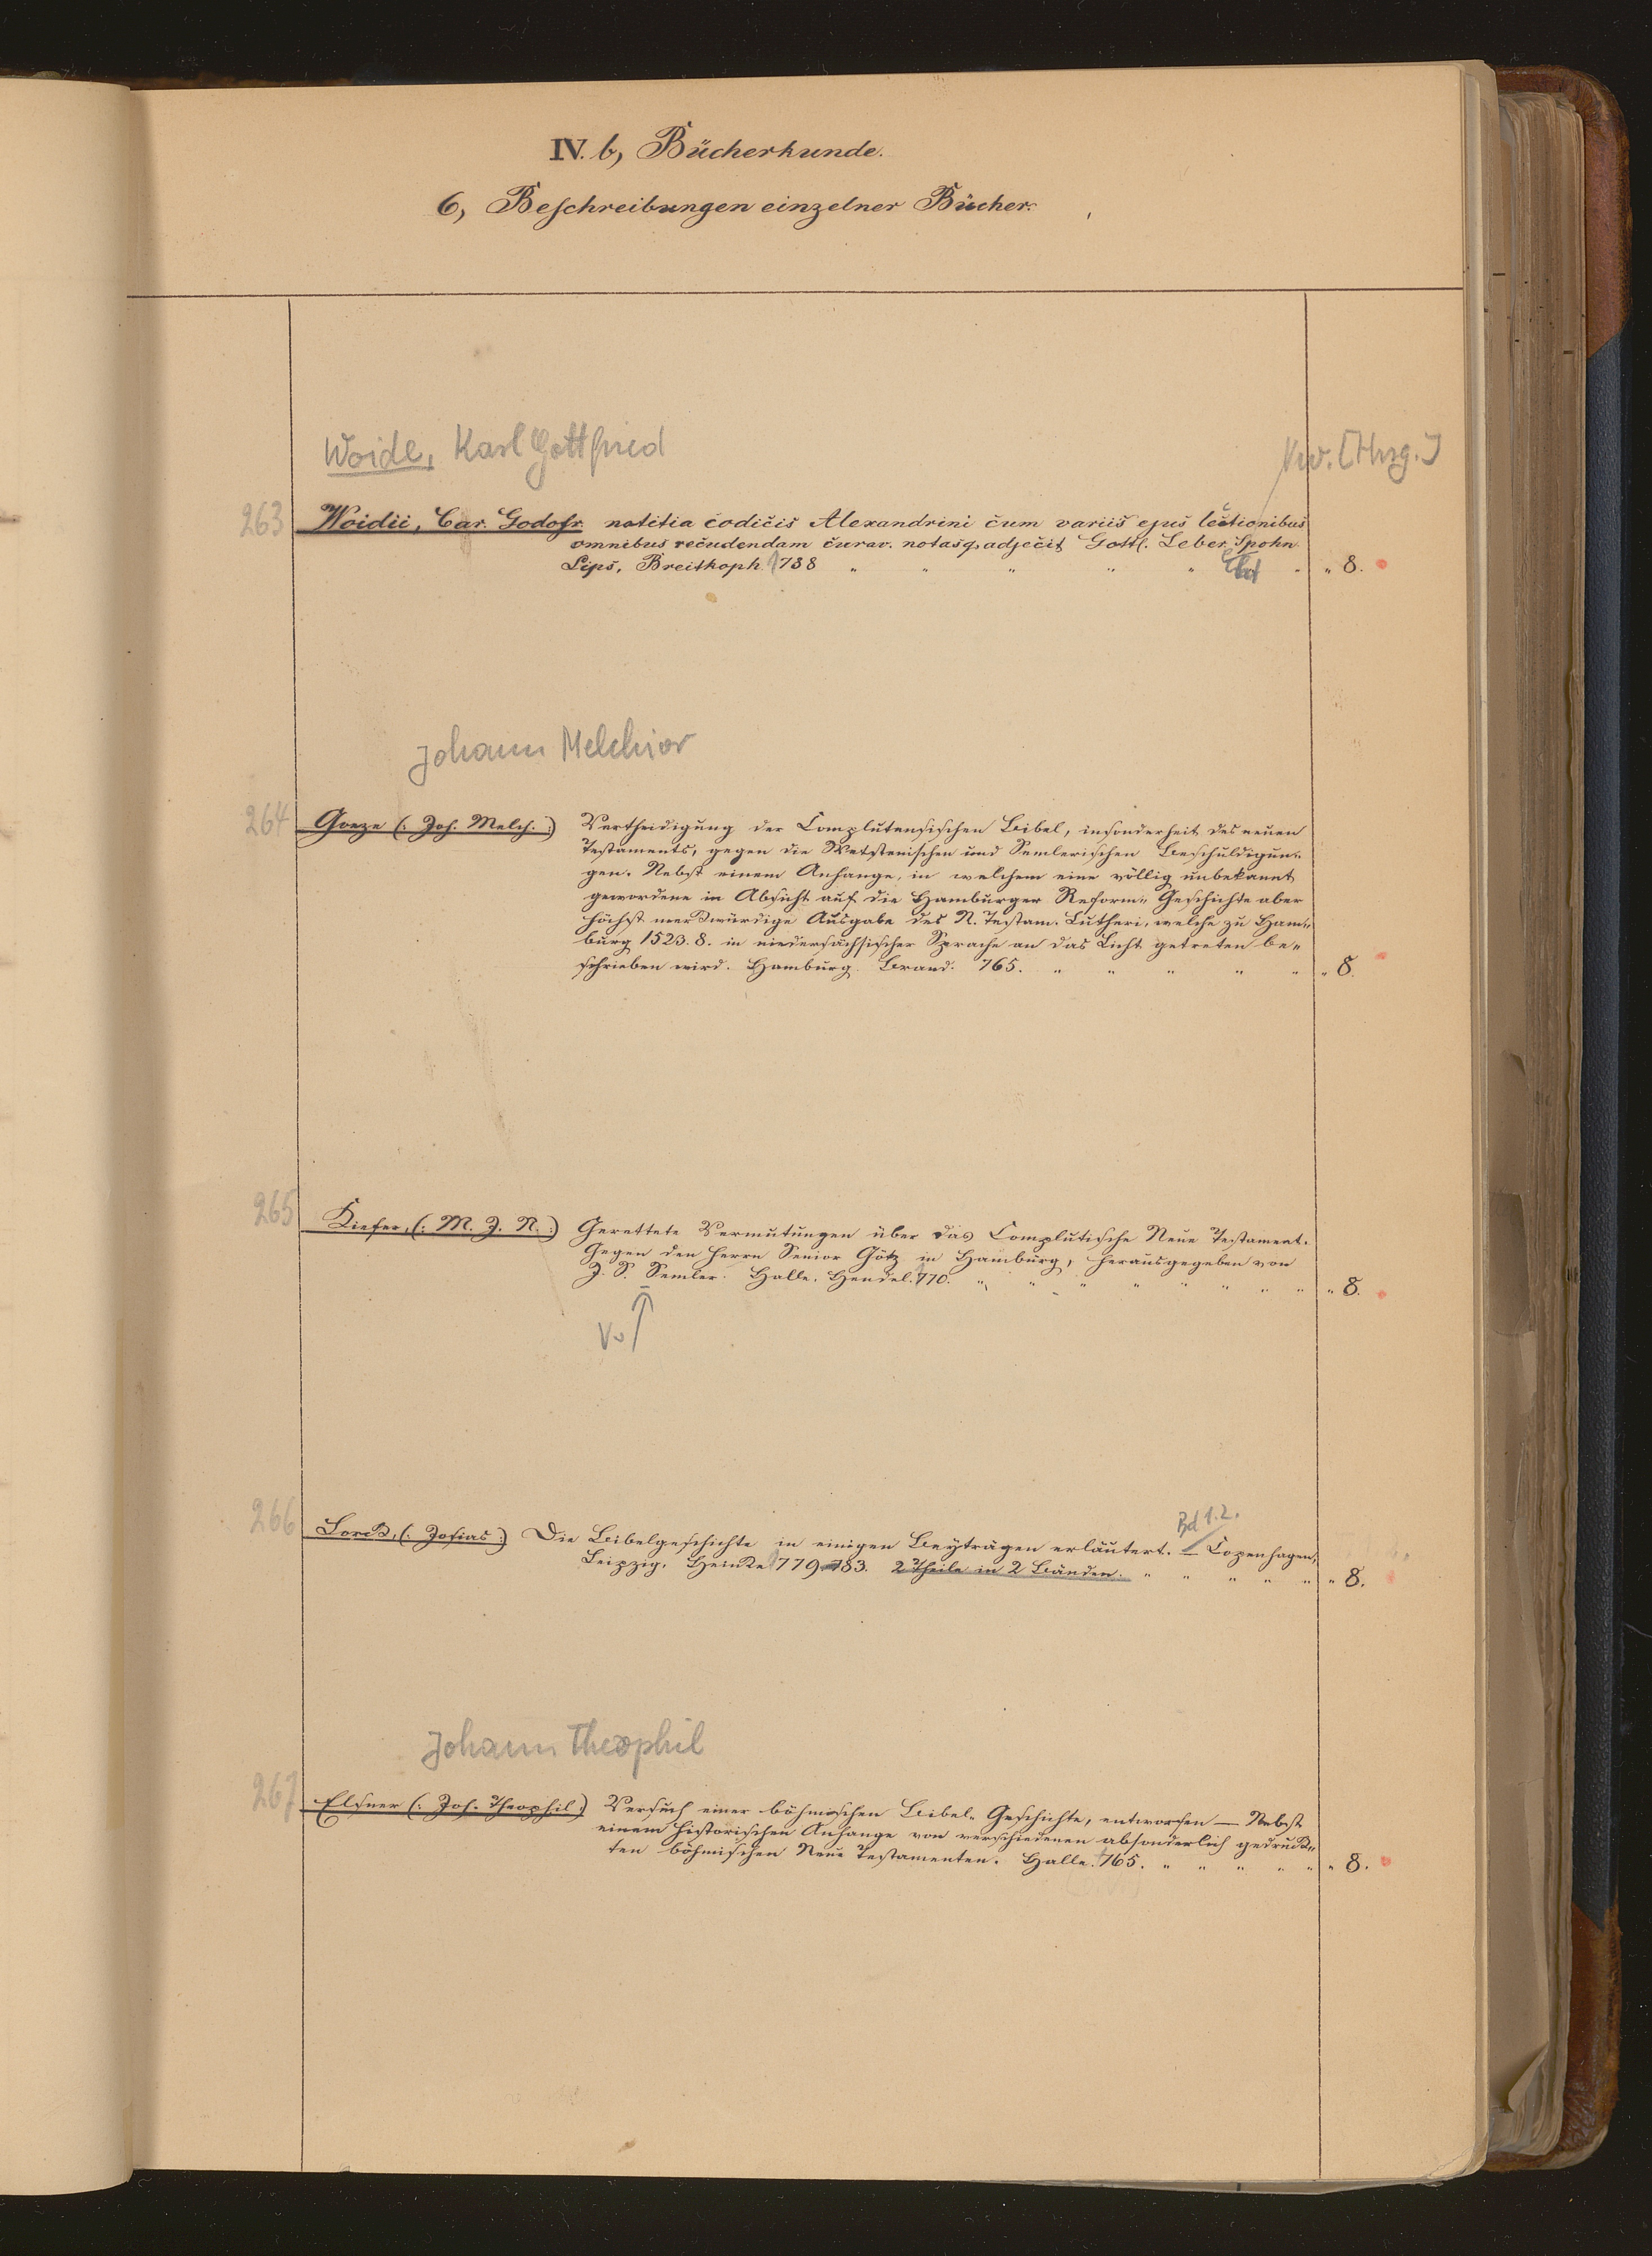 IV. b, Bücherkunde.
6, Beschreibungen einzelner Bücher.
Woide, Karl Gottfried
Vw. [Hrsg.]
263 Woidii, Car. Godofr. notitia codicis Alexandrini cum variis ejus lectionibus
omnibus recudendam curav. notasq. adjecit Gottl. Leber. Spohn.
Lips, Breitkoph 1788 " " " " " " " 8.
Johann Melchior
264 Goeze (: Joh. Melch. :) Vertheidigung der Complutensischen Bibel, insonderheit des neuen
Testaments, gegen die Wetstenischen und Semlerischen Beschuldigun-
gen. Nebst einem Anhange, in welchem eine völlig unbekannt
gewordene in Absicht auf die Hamburger Reform- Geschichte aber
höchst merkwürdige Ausgabe des N. Testam. Lutheri, welche zu Ham-
burg 1523. 8. in niedersächsischer Sprache an das Licht getreten be-
schrieben wird. Hamburg. Brand. 765. " " " " " " 8.
265 Kiefer, (: M. J. N. :) Gerettete Vermutungen über das Complutische Neue Testament.
Gegen den Herrn Senior Götz in Hamburg, herausgegeben von
J. S. Semler. Halle. Hendel. 1770. " " " " " " " " " 8.
Vw
266 Lork, (: Josias :) Die Bibelgeschichte in einigen Beyträgen erläutert. — Copenhagen,
Bd 1.2.
Leipzig. Heinke 1779-783. 2 Theile in 2 Bänden. " " " " " " 8.
Johann Theophil
267 Elsner (: Joh. Theophil :) Versuch einer böhmischen Bibel- Geschichte, entworfen — Nebst
einem historischen Anhange von verschiedenen absonderlich gedruck-
ten böhmischen Neue Testamenten. Halle. 1765. " " " " " " 8.